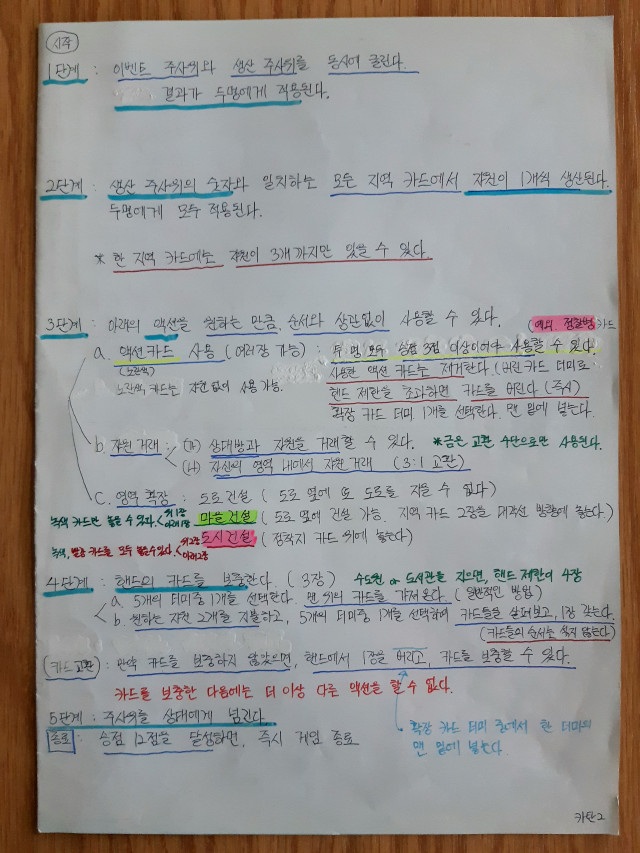 시작
1단계 : 이벤트 주사위와 생산 주사위를 동시에 굴린다.
결과가 두명에게 적용된다.
2단계 : 생산 주사위의 숫자와 일치하는 모든 지역 카드에서 자원이 1개씩 생산된다.
두명에게 모두 적용된다.
* 한 지역 카드에는 자원이 3개 까지만 있을 수 있다.
3단계 : 아래의 액션을 원하는 만큼, 순서와 상관없이 사용할 수 있다.
(예외. 정찰병 카드
a. 액션카드 사용 (여러장 가능) : 두 명 모두 승점 3점 이상이어야 사용할 수 있다.
(노란색)
노란색 카드는 자원 없이 사용 가능.
사용한 액션 카드는 제거한다. (버린 카드 더미로
핸드 제한을 초과하면 카드를 버린다 (즉시)
확장 카드 더미 1개를 선택한다. 맨 밑에 넣는다.
b. 자원 거래 : (가) 상대방과 자원을 거래할 수 있다. *금은 교환 수단으로만 사용된다.
(나) 자신의 영역 내에서 자원 거래 (3:1 교환)
C. 영역 확장 : 도로 건설 ( 도로 옆에 또 도로를 지을 수 없다)
녹색 카드만 놓을 수 있다. 위1장 아래1장 마을 건설 ( 도로 옆에 건설 가능. 지역 카드 2장을 대각선 방향에 놓는다.)
녹색, 빨강 카드를 모두 놓을 수 있다. 위2장 아래2장 도시건설 ( 정착지 카드 위에 놓는다)
4단계 : 핸드의 카드를 보충한다. (3장) 수도원 or 도서관을 지으면, 핸드 제한이 4장
a. 5개의 더미중 1개를 선택한다. 맨 위의 카드를 가져온다. (일반적인 방법)
b. 원하는 자원 2개를 지불하고, 5개의 더미중 1개를 선택하여 카드들을 살펴보고, 1장 갖는다.
(카드들의 순서는 섞지 않는다)
(카드교환) : 만약 카드를 보충하지 않았으면, 핸드에서 1장을 버리고, 카드를 보충할 수 있다.
카드를 보충한 다음에는 더 이상 다른 액션을 할 수 없다.
5단계 : 주사위를 상대에게 넘긴다.
확장 카드 더미 중에서 한 더미의
맨 밑에 넣는다.
종료 : 승점 12점을 달성하면, 즉시 게임 종료
카탄2